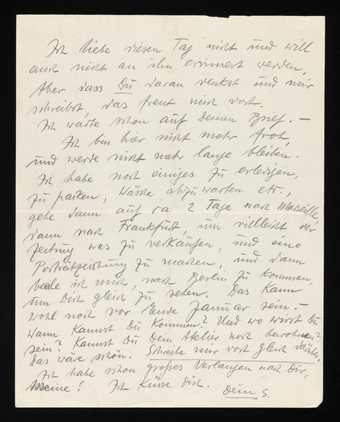 Ich liebe diesen Tag nicht und will
auch nicht an ihn erinnert werden,
Aber dass Du daran denkst und mir
schreibst, das freut mich doch.
Ich warte schon auf deinen Brief. —
Ich bin hier nicht mehr froh,
und werde nicht mehr lange bleiben.
Ich habe noch einiges zu erledigen,
zu packen, Wäsche abzuwarten etc.,
gehe dann auf ca 2 Tage nach Marseille,
dann nach Frankfurt, um vielleicht der
Zeitung was zu verkaufen, und eine
Porträtzeichnung zu machen, und dann
beeile ich mich, nach Berlin zu kommen,
um Dich gleich zu sehen. Das kann
wohl noch vor Ende Januar sein. —
Wann kannst Du kommen? Und wo wirst Du
sein? Kannst Du Dein Atelier noch
Das wäre schön. Schreibe mir doch gleich
Ich habe schon grosses Verlangen nach Dir,
Meine! Ich küsse Dich. Dein S.